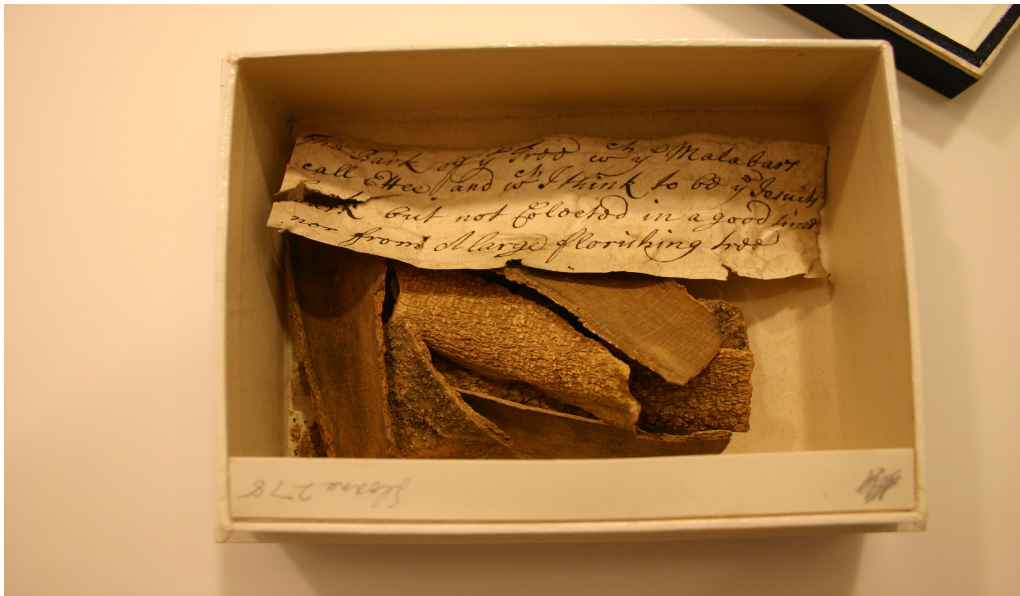 The Bark of yͤ Tree wᶜʰ yͤ Malabars
call Ettee and wᶜʰ I think to be yͤ Jesuits
but not Colected in a good time
nor from A large florishing tree
Sloane 278